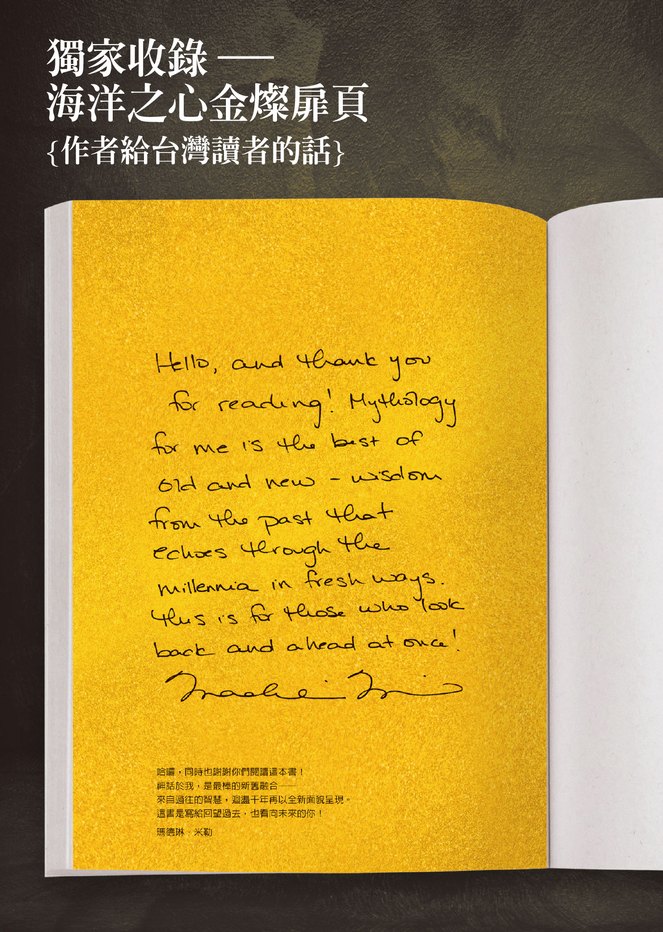 獨家收錄——
海洋之心金燦扉頁
{作者給台灣讀者的話}
Hello, and thank you
for reading! Mythology
for me is the best of
old and new – wisdom
from the past that
echoes through the
millennia in fresh ways.
This is for those who look
back and ahead at once!
哈囉，同時也謝謝你們閱讀這本書！
神話於我，是最棒的新舊融合——
來自過往的智慧，迴盪千年再以全新面貌呈現。
這書是寫給回望過去，也看向未來的你！
瑪德琳．米勒